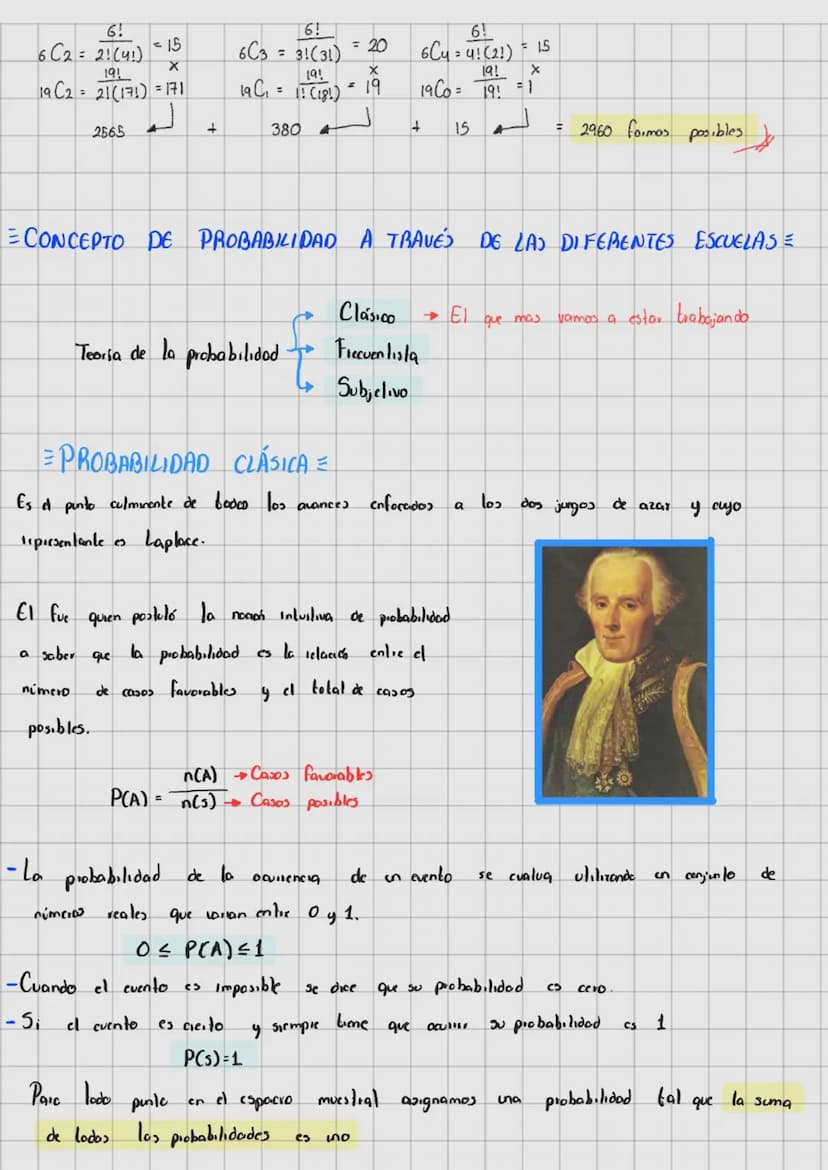 6C2 = 6!/2!(4!) = 15   6C3 = 6!/3!(3!) = 20   6C4 = 6!/4!(2!) = 15
x   x   x
19C2 = 19!/2!(17!) = 171   19C1 = 19!/1!(18!) = 19   19C0 = 19!/19! = 1
2565 + 380 + 15 = 2960 formas posibles
≡CONCEPTO DE PROBABILIDAD A TRAVÉS DE LAS DIFERENTES ESCUELAS≡
Clásico → El que mas vamos a estar trabajando
Teoría de la probabilidad → Frecuentista
Subjetivo
≡PROBABILIDAD CLÁSICA≡
Es el punto culminante de todos los avances enfocados a los dos juegos de azar y cuyo
representante es Laplace.
El fue quien postuló la noción intuitiva de probabilidad
a saber que la probabilidad es la relación entre el
número de casos favorables y el total de casos
posibles.
P(A) = n(A)/n(s)
n(A) → Casos favorables
n(s) → Casos posibles
-La probabilidad de la ocurrencia de un evento se evalua utilizando un conjunto de
números reales que varian entre 0 y 1.
0 ≤ P(A) ≤ 1
-Cuando el evento es imposible se dice que su probabilidad es cero.
-Si el evento es cierto y siempre tiene que ocurrir su probabilidad es 1
P(s)=1
Para todo punto en el espacio muestral asignamos una probabilidad tal que la suma
de todos las probabilidades es uno